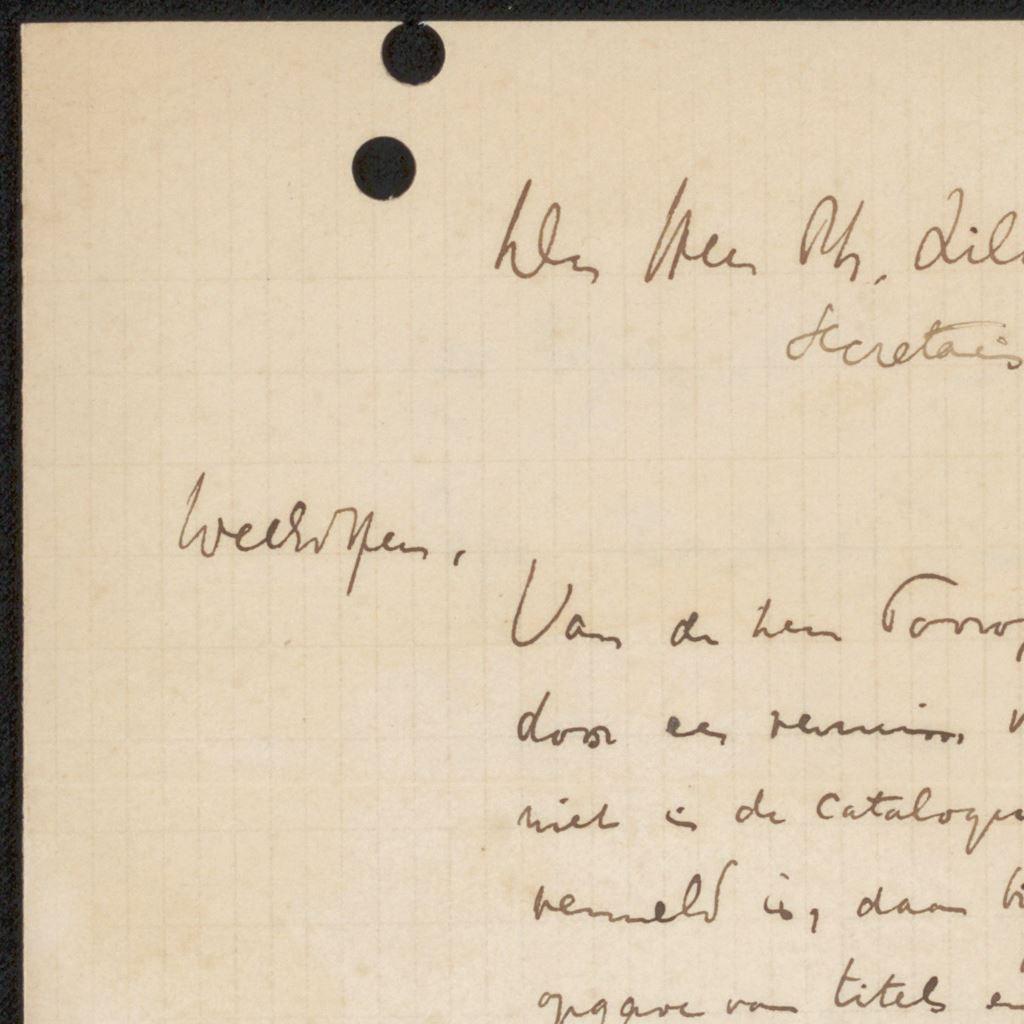 Den Heer Ph. Zil
Secretaris
WelEd Heer,
Van den heer Toorop
door een verzuim
niet in de Catalogu
vermeld is, daar
opgave van titels en